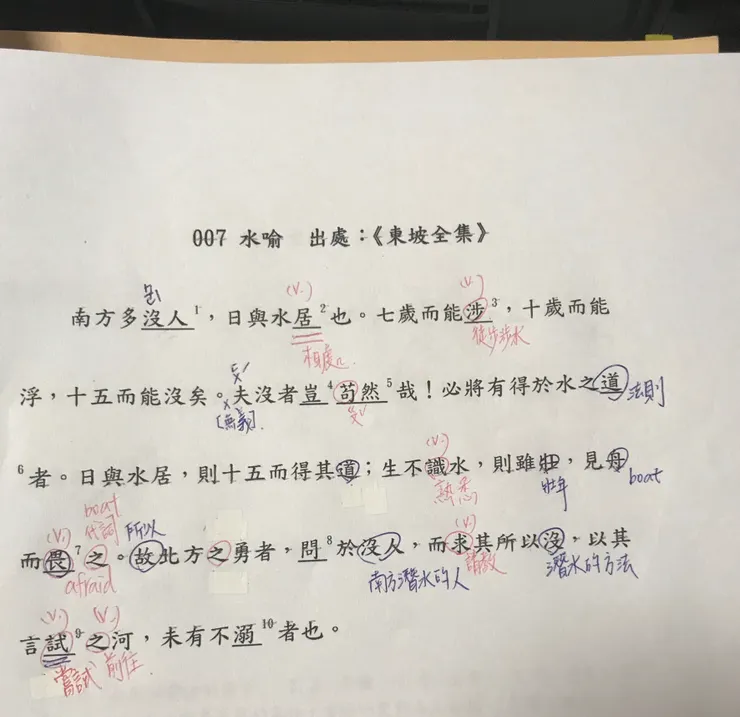 007 水喻 出處：《東坡全集》
(V.) (V.)
南方多沒人1，日與水居2也。七歲而能涉3，十歲而能
相處 徒步涉水
浮，十五而能沒矣。夫沒者豈4苟然5哉！必將有得於水之道 法則
[無義]
6者。日與水居，則十五而得其道；生不識水，則雖壯，見舟 boat
(V.) 熟悉 壯年
boat
(V.) 代詞 所以 (V.)
而畏7之。故北方之勇者，問8於沒人，而求其所以沒，以其
afraid 南方潛水的人 請教 潛水的方法
(V.) (V.)
言試9之河，未有不溺10者也。
嘗試 前往